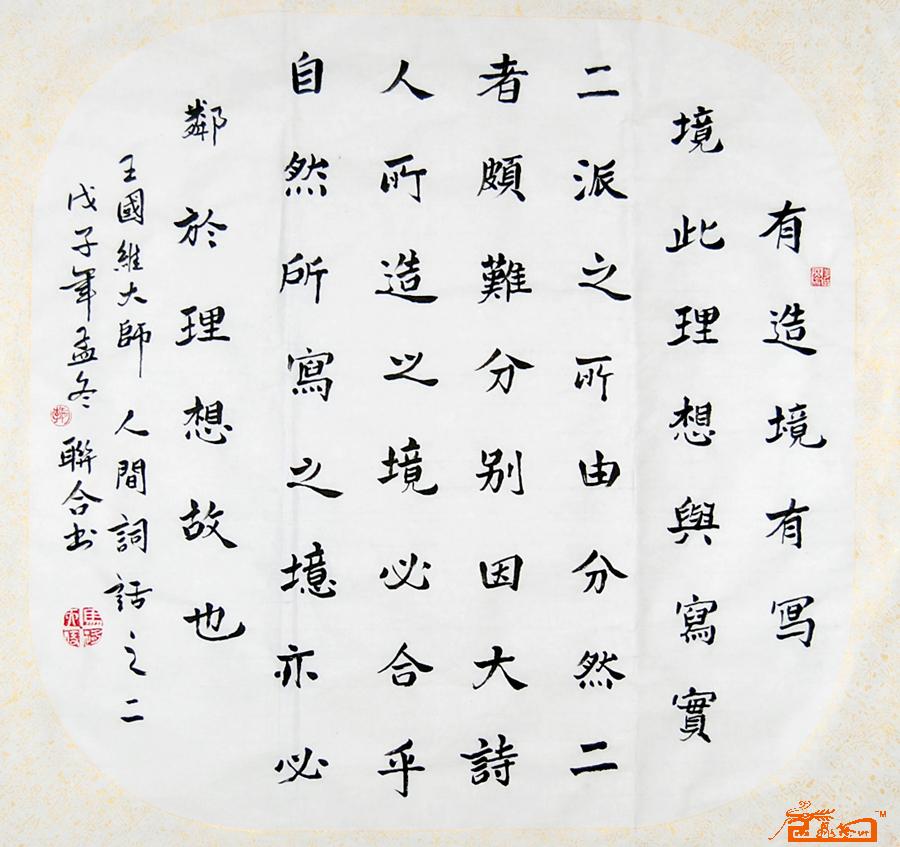 有造境有写
境此理想與寫實
二派之所由分然二
者頗難分别因大詩
人所造之境必合乎
自然所寫之境亦必
鄰於理想故也
王國維大師人間詞話之二
戊子年孟冬聯合书